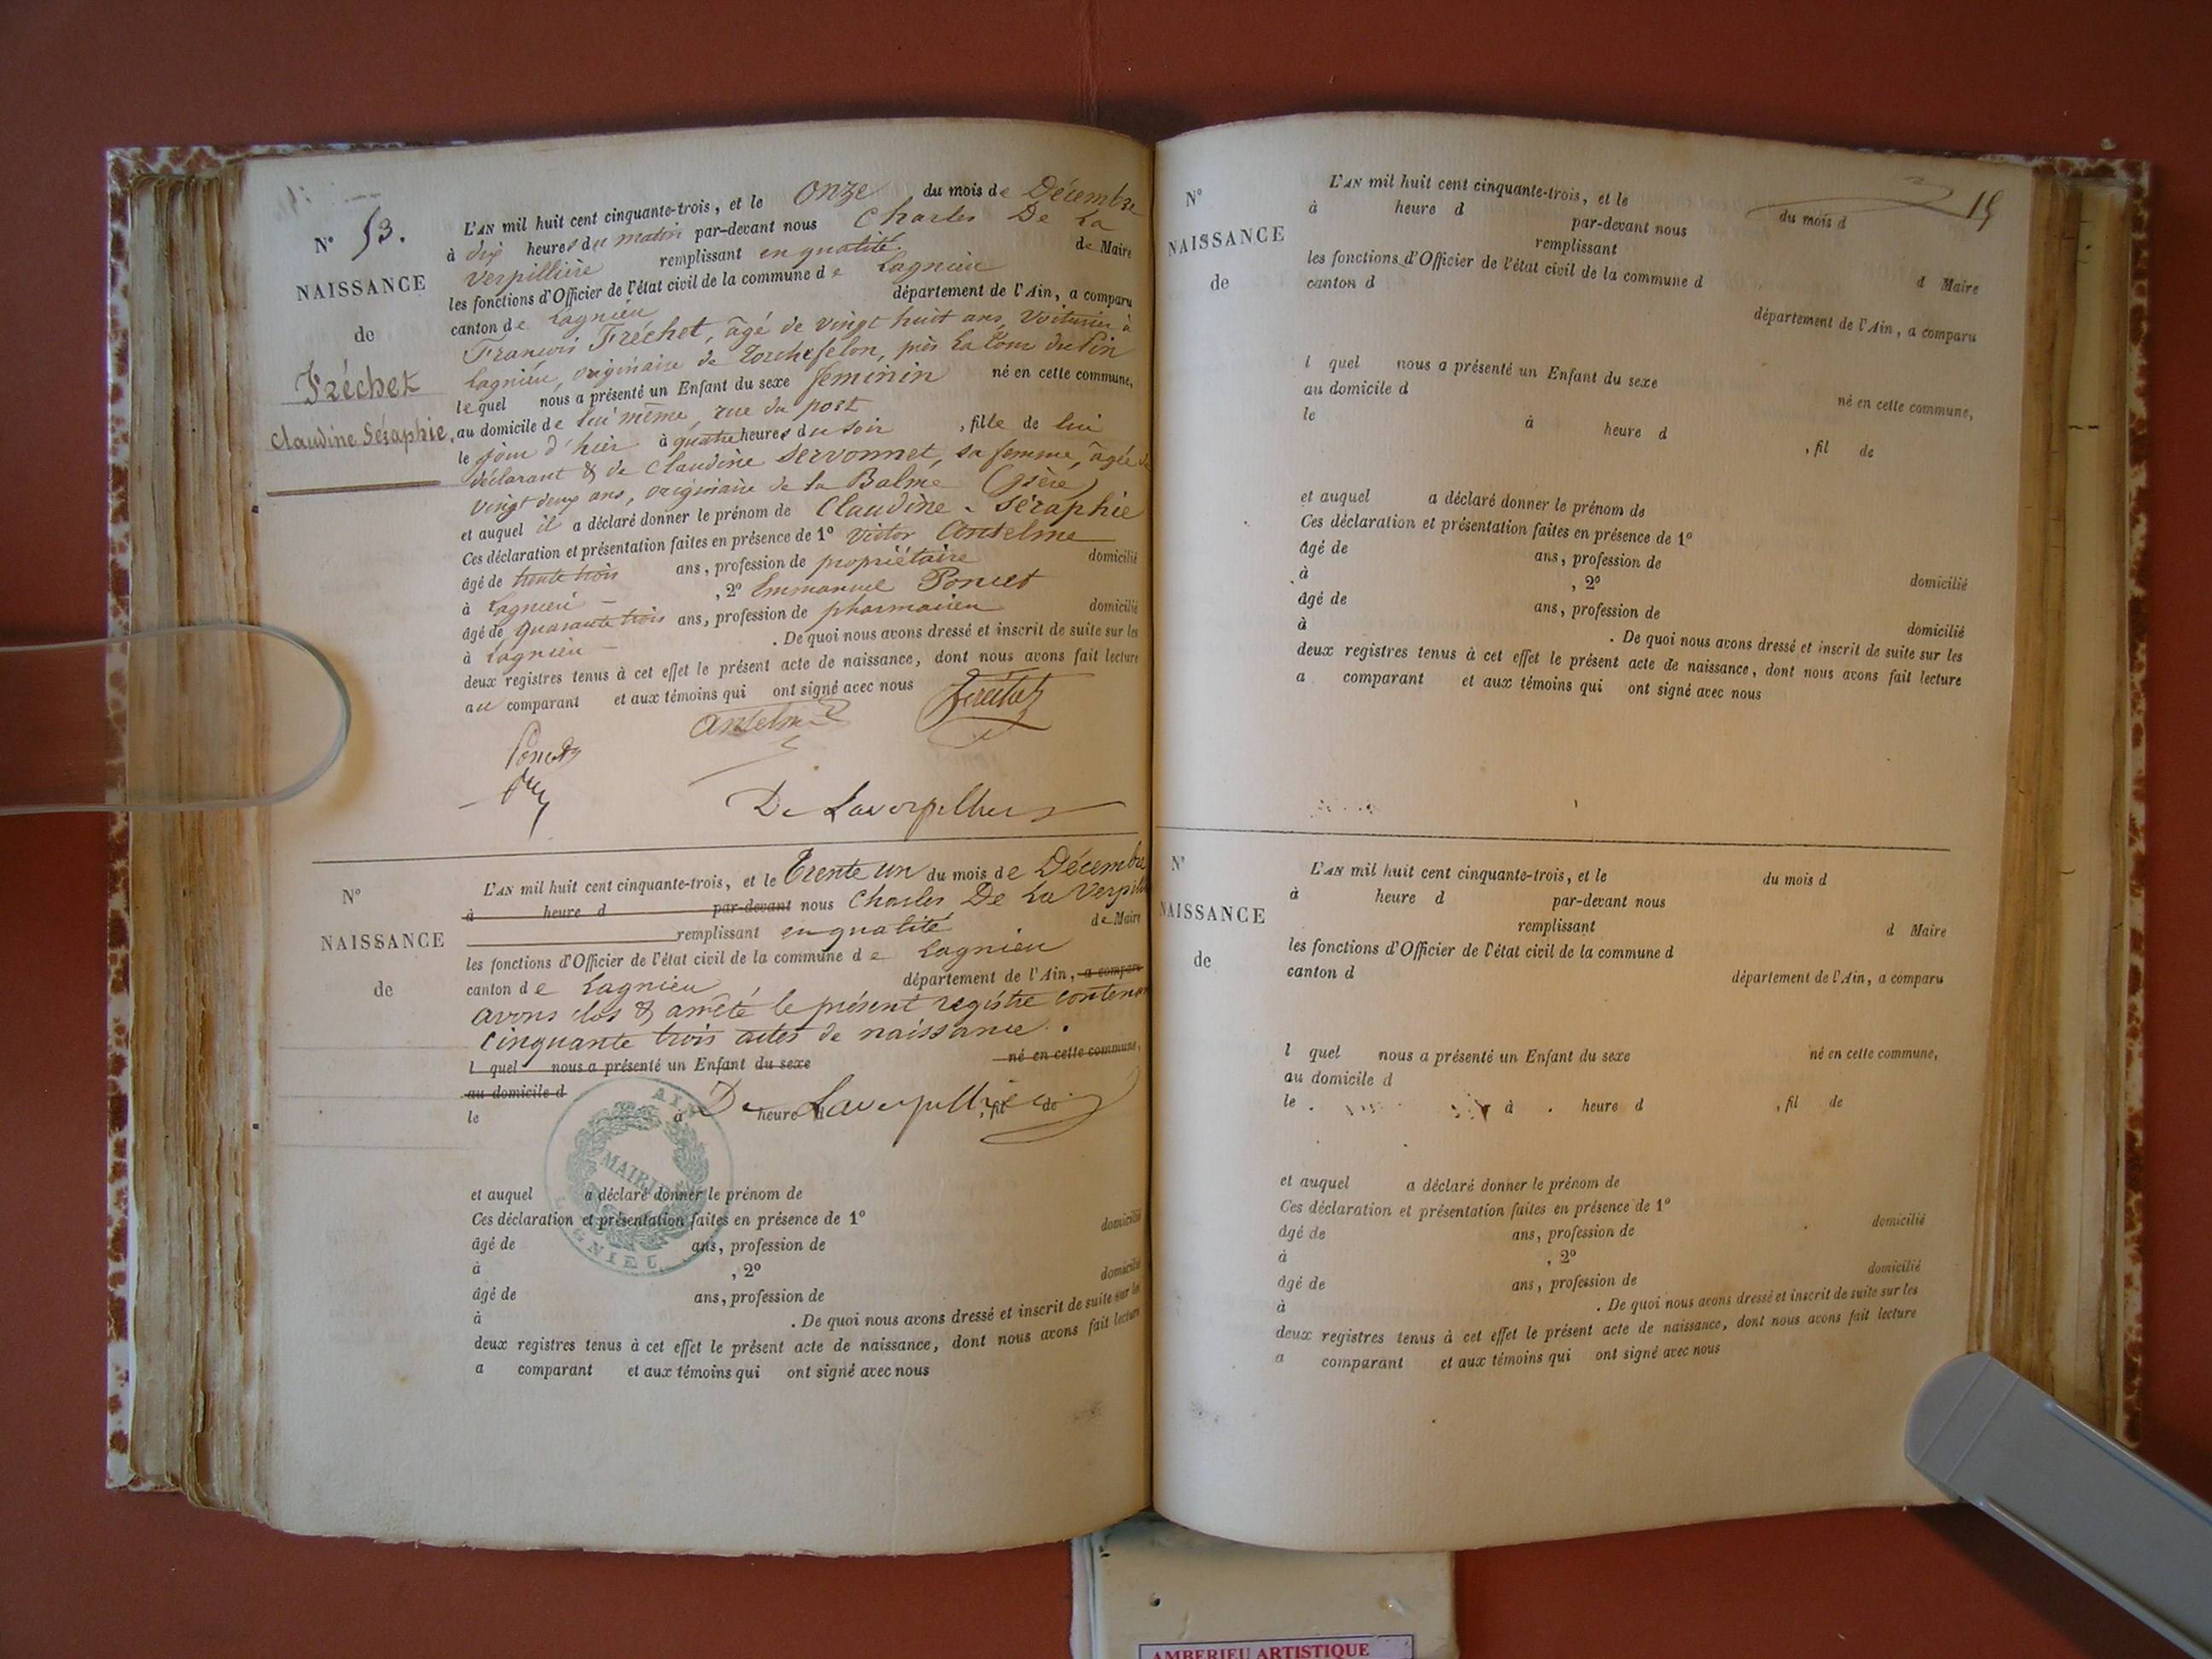 N° 53.
NAISSANCE
de
Fréchet
Claudine Séraphie.
L'AN mil huit cent cinquante-trois, et le onze du mois de Décembre
à dix heures du matin par-devant nous Charles De La
Verpillière remplissant en qualité de Maire
les fonctions d'Officier de l'état civil de la commune de Lagnieu
canton de Lagnieu département de l'Ain, a comparu
François Fréchet, âgé de vingt huit ans, Voiturier à
Lagnieu, originaire de Torchefelon, près La Tour du Pin
lequel nous a présenté un Enfant du sexe feminin né en cette commune,
au domicile de lui même, rue du port
le jour d'hier à quatre heures du soir , fille de lui
déclarant & de Claudine Servonnet, sa femme, âgée de
vingt deux ans, originaire de la Balme (Isère)
et auquel il a déclaré donner le prénom de Claudine - Séraphie
Ces déclaration et présentation faites en présence de 1° Victor Anselme
âgé de trente trois ans, profession de propriétaire domicilié
à Lagnieu , 2° Emmanuel Poncet
âgé de quarante trois ans, profession de pharmacien domicilié
à Lagnieu . De quoi nous avons dressé et inscrit de suite sur les
deux registres tenus à cet effet le présent acte de naissance, dont nous avons fait lecture
au comparant et aux témoins qui ont signé avec nous
Anselme Fréchet
Poncet
De Laverpilliere
N°
NAISSANCE
de
L'AN mil huit cent cinquante-trois, et le Trente un du mois de Décembre
à heure d par-devant nous Charles De La Verpill
remplissant en qualité de Maire
les fonctions d'Officier de l'état civil de la commune de Lagnieu
canton de Lagnieu département de l'Ain, a comparu
avons clos & arrêté le présent registre contenant
cinquante trois actes de naissance.
l quel nous a présenté un Enfant du sexe né en cette commune,
au domicile d
le à heure d , fil de
De Laverpilliere
AIN
MAIRIE
LAGNIEU
et auquel a déclaré donner le prénom de
Ces déclaration et présentation faites en présence de 1°
âgé de ans, profession de domicilié
à , 2°
âgé de ans, profession de domicilié
à . De quoi nous avons dressé et inscrit de suite sur les
deux registres tenus à cet effet le présent acte de naissance, dont nous avons fait lecture
a comparant et aux témoins qui ont signé avec nous
15
N°
NAISSANCE
de
L'AN mil huit cent cinquante-trois, et le du mois d
à heure d par-devant nous
remplissant d Maire
les fonctions d'Officier de l'état civil de la commune d
canton d département de l'Ain, a comparu
l quel nous a présenté un Enfant du sexe né en cette commune,
au domicile d
le à heure d , fil de
et auquel a déclaré donner le prénom de
Ces déclaration et présentation faites en présence de 1°
âgé de ans, profession de domicilié
à , 2°
âgé de ans, profession de domicilié
à . De quoi nous avons dressé et inscrit de suite sur les
deux registres tenus à cet effet le présent acte de naissance, dont nous avons fait lecture
a comparant et aux témoins qui ont signé avec nous
N°
NAISSANCE
de
L'AN mil huit cent cinquante-trois, et le du mois d
à heure d par-devant nous
remplissant d Maire
les fonctions d'Officier de l'état civil de la commune d
canton d département de l'Ain, a comparu
l quel nous a présenté un Enfant du sexe né en cette commune,
au domicile d
le à heure d , fil de
et auquel a déclaré donner le prénom de
Ces déclaration et présentation faites en présence de 1°
âgé de ans, profession de domicilié
à , 2°
âgé de ans, profession de domicilié
à . De quoi nous avons dressé et inscrit de suite sur les
deux registres tenus à cet effet le présent acte de naissance, dont nous avons fait lecture
a comparant et aux témoins qui ont signé avec nous
AMBERIEU ARTISTIQUE